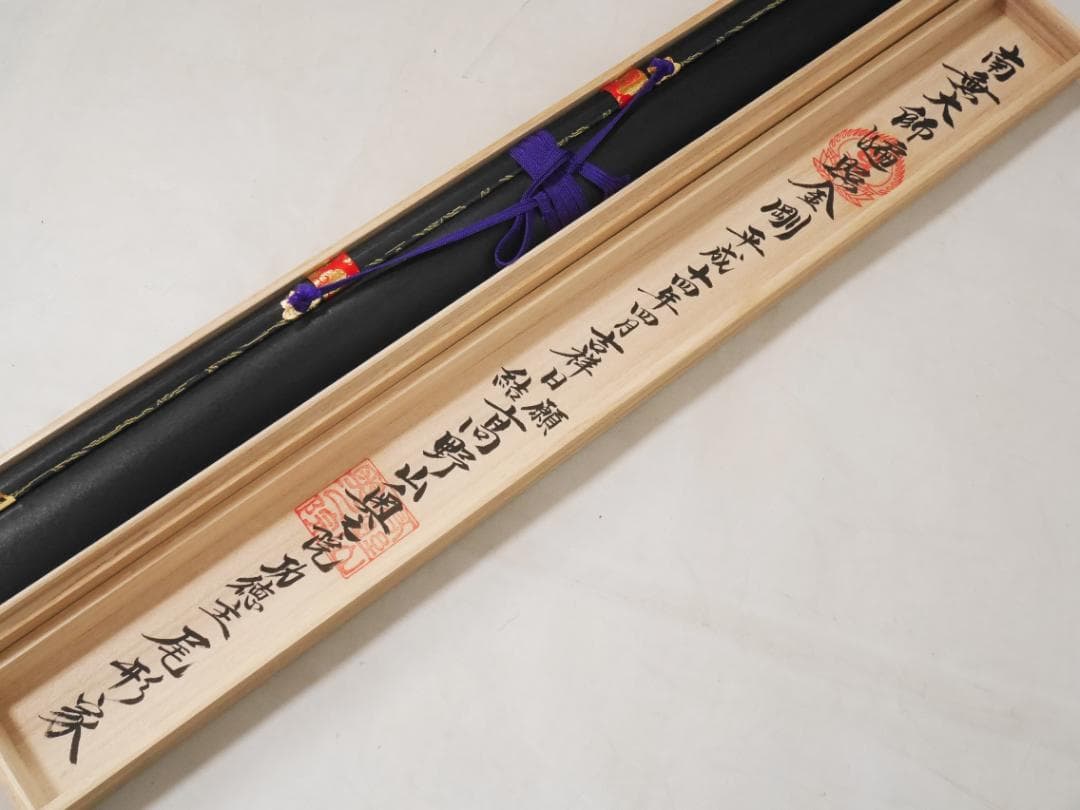 南無大師遍照金剛
平成十四年四月吉祥日
結願
高野山奥之院
功徳主
尾形家